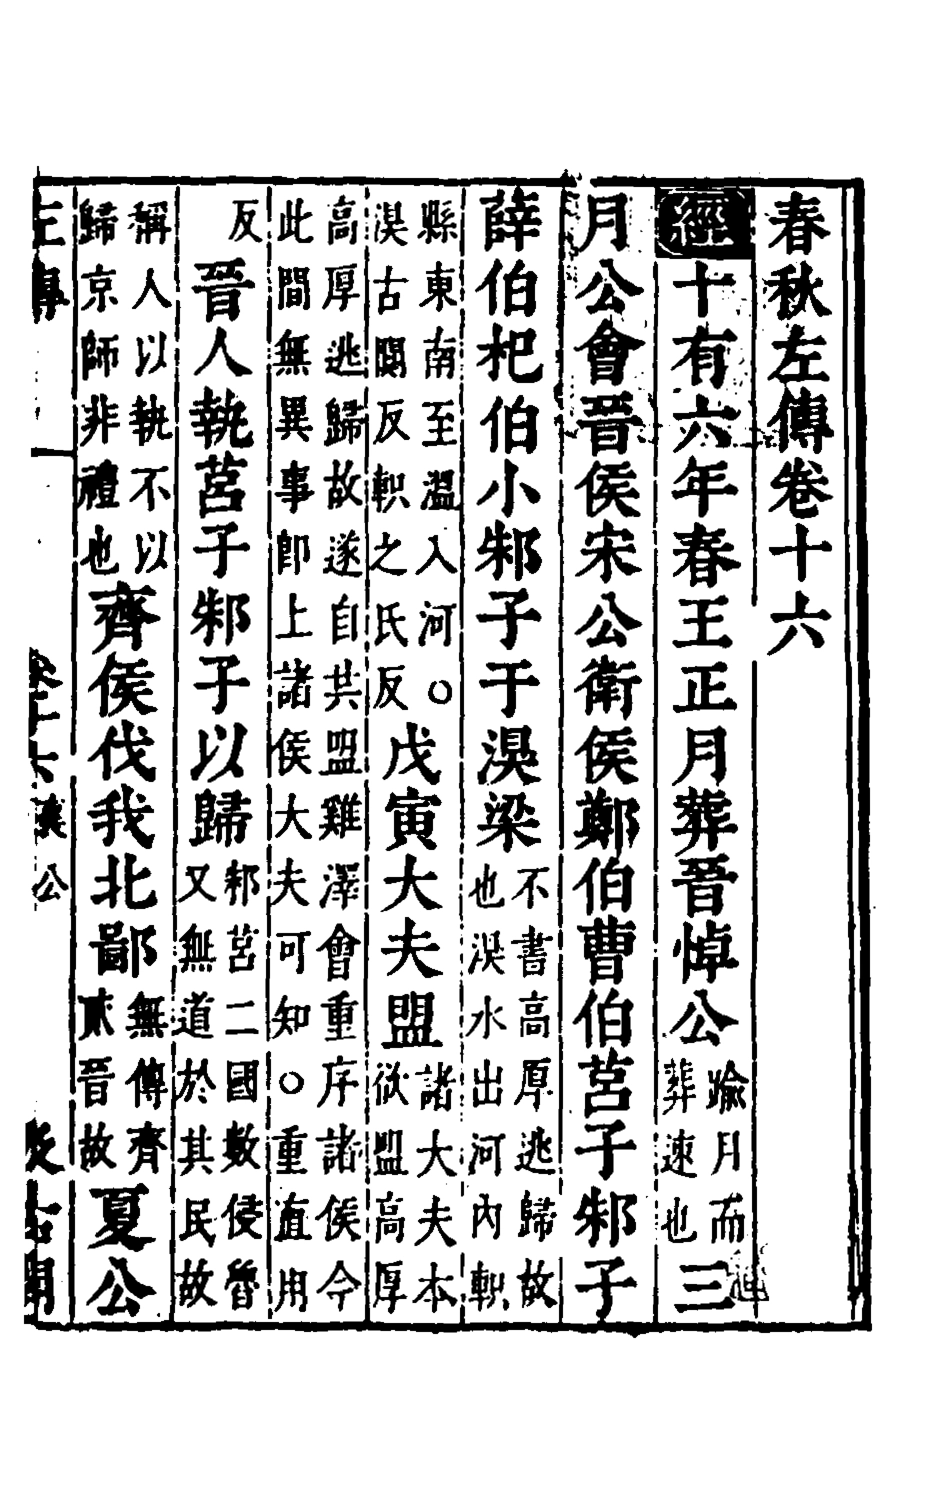 春秋左傳卷十六
經十有六年春王正月葬晉悼公踰月而葬速也三
月公會晉侯宋公衛侯鄭伯曹伯莒子邾子
薛伯杞伯小邾子于湨梁不書高厚逃歸故也湨水出河內軹
縣東南至溫入河○湨古闃反軹之氏反戊寅大夫盟諸大夫本欲盟高厚
高厚逃歸故遂自共盟雞澤會重序諸侯今此間無異事卽上諸侯大夫可知○重直用
反晉人執莒子邾子以歸邾莒二國數侵魯又無道於其民故
稱人以執不以歸京師非禮也齊侯伐我北鄙無傳齊貳晉故夏公
左傳 卷十六 襄公 汲古閣